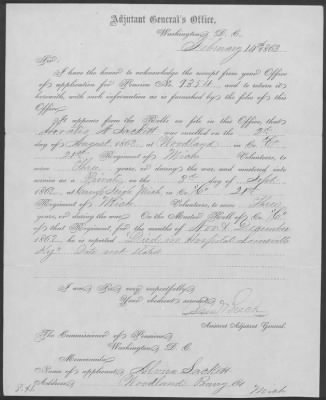 Adjutant General's Office,
Washington, D. C.
February 14th 1863
Sir:
I have the honor to acknowledge the receipt from your Office
of application for Pension No. and to return it
herewith, with such information as is furnished by the files of this
Office.
It appears from the Rolls on file in this Office, that
Sackett was enrolled on the 2d
day of August 1862 at Woodland in Co. "C"
21st Regiment of Mich Volunteers, to
serve Three years, or during the war, and mustered into
service as a Private on the day of Sept
1862, at Camp Mich, in Co. "C" 21st
Regiment of Mich Volunteers, to serve Three
years, or during the war. On the Muster Roll of Co. "C"
of that Regiment, for the months of Nov & December
1862, he is reported Died in Hospital Louisville
Ky. Date not stated
I am, Sir, very respectfully,
Your obedient servant,
Assistant Adjutant General.
The Commissioner of Pensions
Washington, D. C.
Memoranda:
Name of applicant, Sackett
Address, Woodland Barry Co
Mich